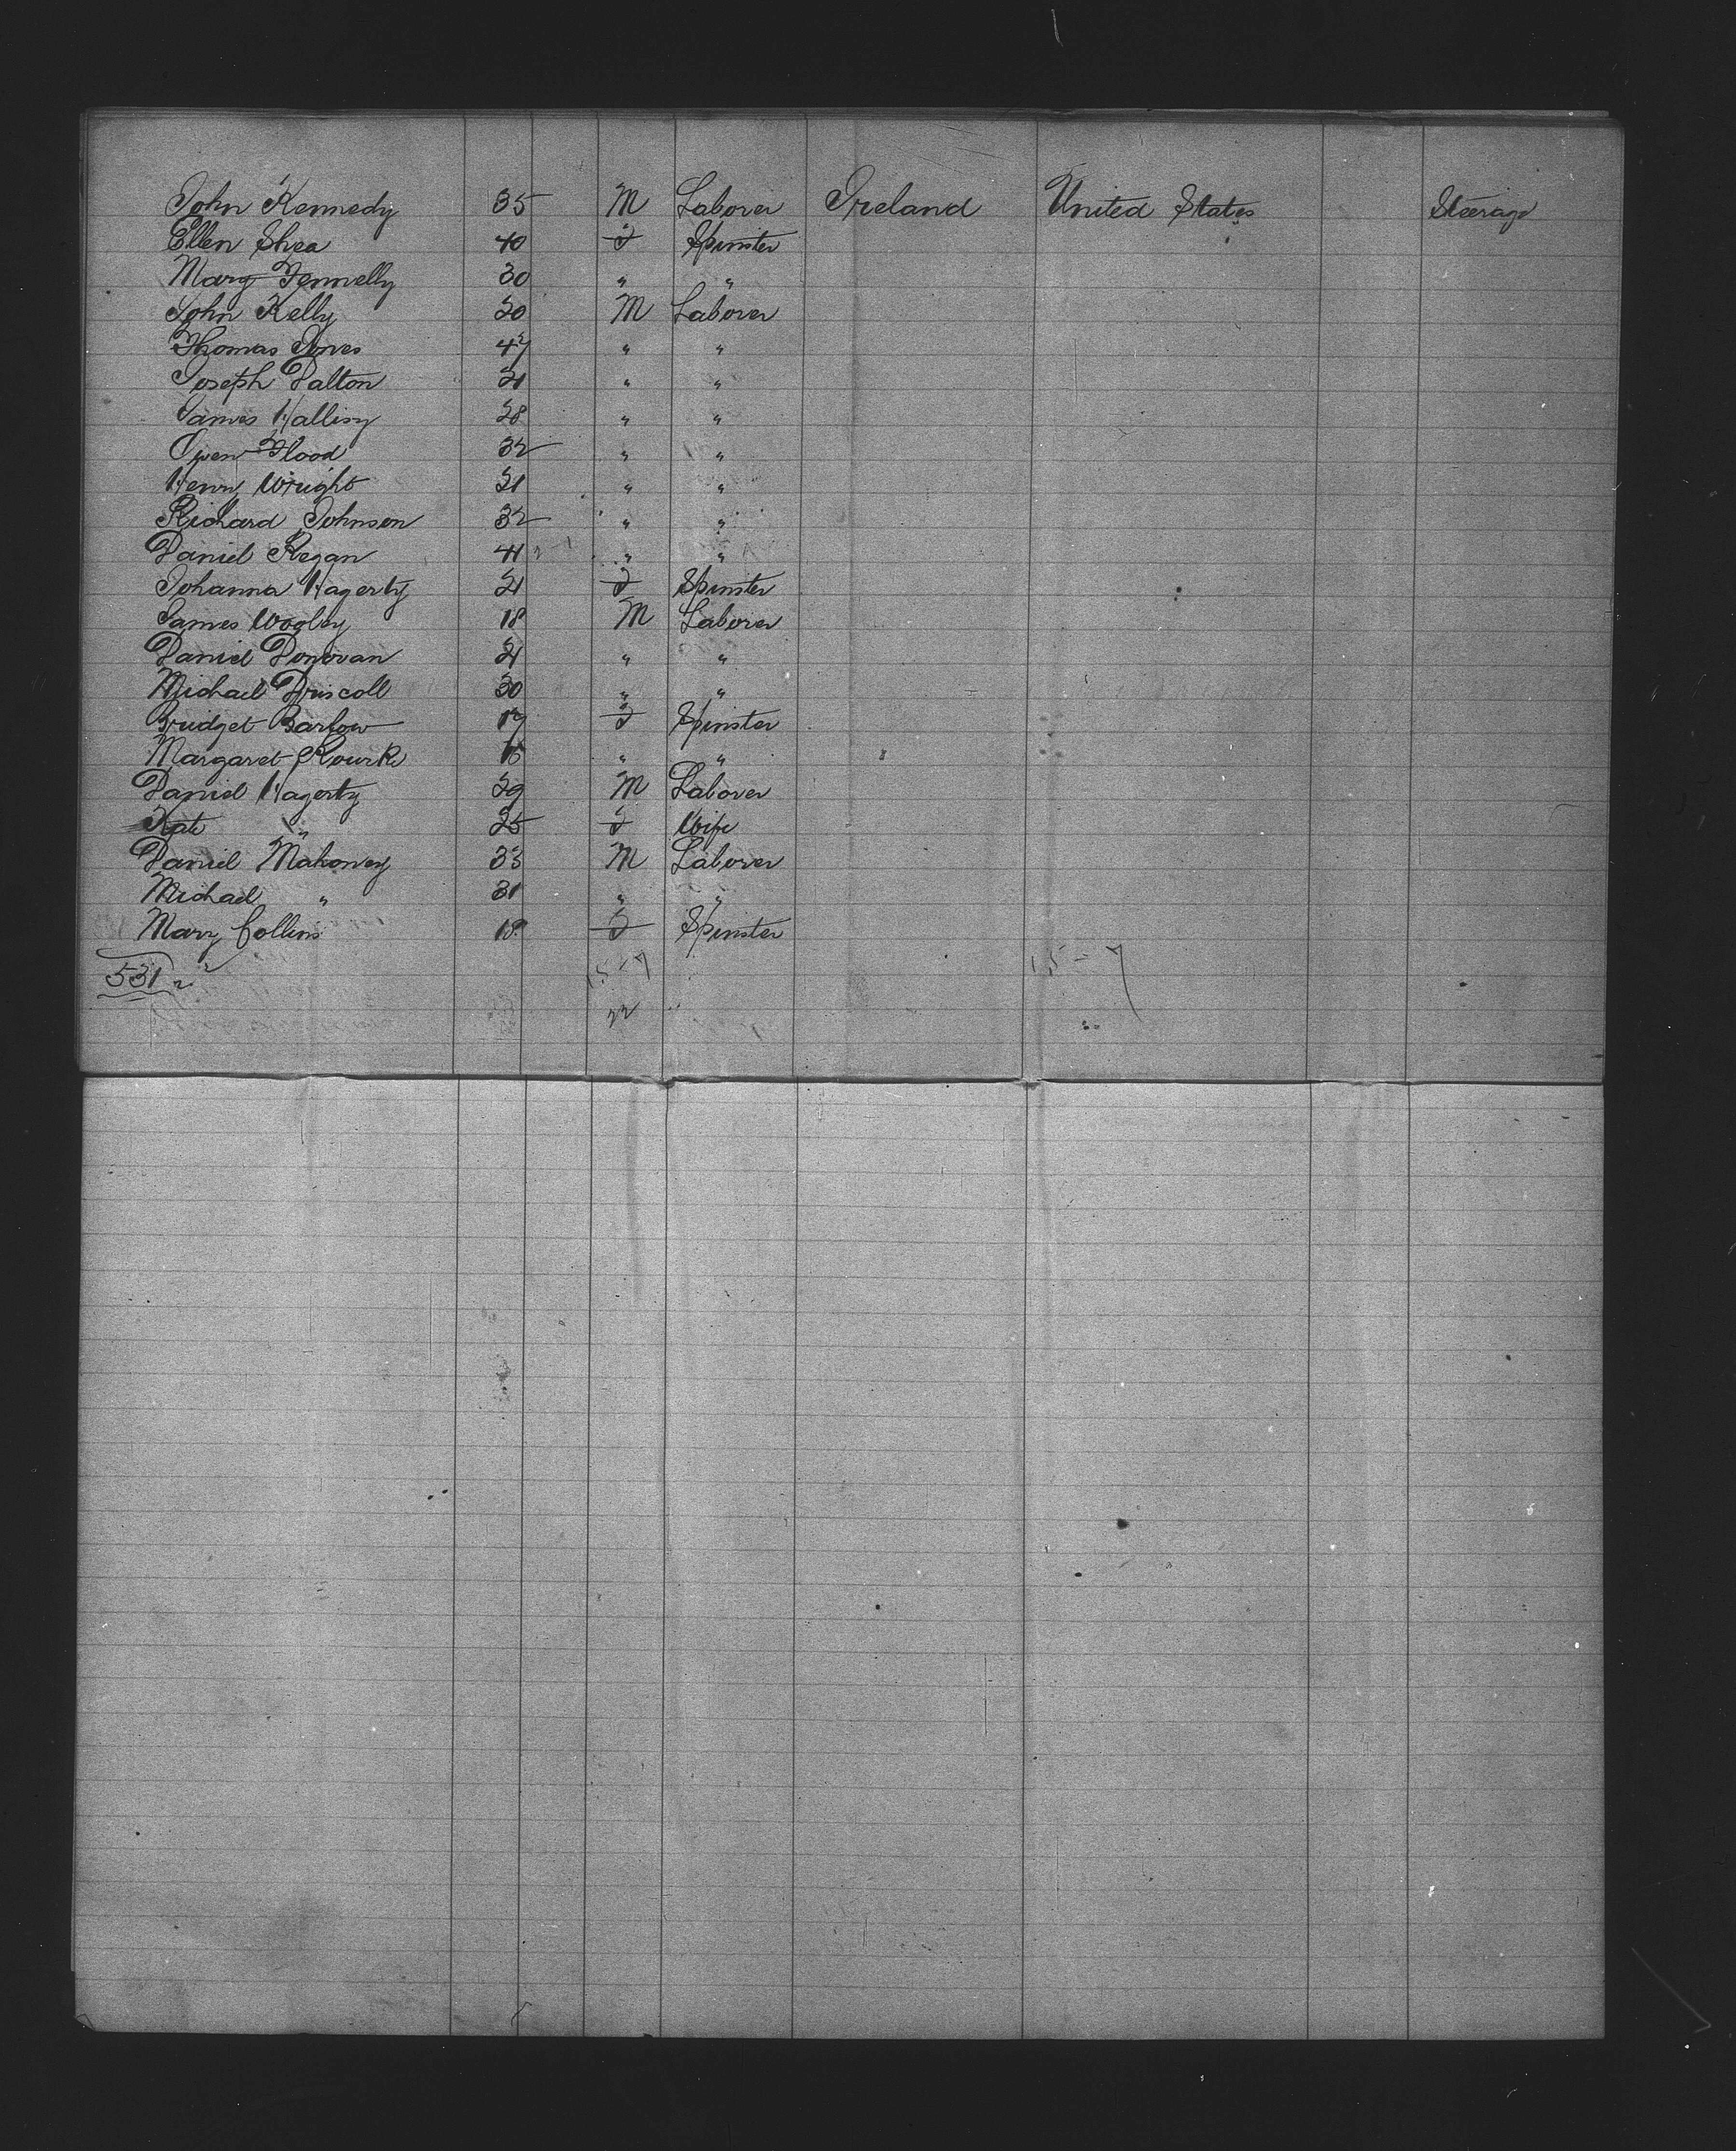 John Kennedy 35 M Laborer Ireland United States Steerage
Ellen Shea 40 F Spinster
Mary Fennelly 30 " "
John Kelly 20 M Laborer
Thomas Jones 47 " "
Joseph Dalton 21 " "
James Hallisy 28 " "
Owen Flood 32 " "
Henry Wright 21 " "
Richard Johnson 32 " "
Daniel Regan 41 " "
Johanna Hagerty 21 F Spinster
James 18 M Laborer
Daniel Donovan 21 " "
Michael Driscoll 30 " "
Bridget Barlow 17 F Spinster
Margaret Rourke 18 " "
Daniel Hagerty 29 M Laborer
Kate " 25 F Wife
Daniel Mahoney 33 M Laborer
Michael " 31 " "
Mary Collins 18 F Spinster
531 15-7 15-7
22